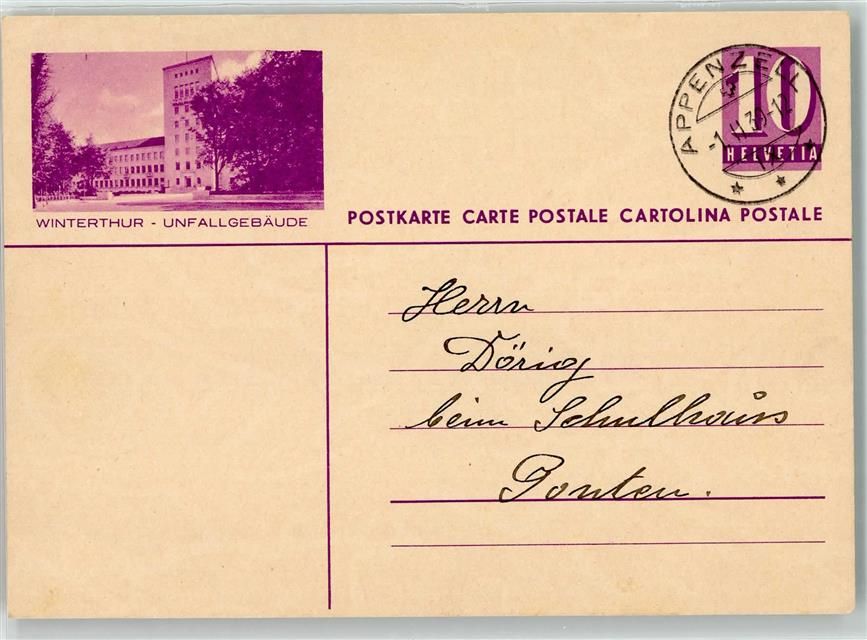 WINTERTHUR - UNFALLGEBÄUDE
APPENZELL
-1.II.39-12
10
HELVETIA
POSTKARTE CARTE POSTALE CARTOLINA POSTALE
Herrn
Dörig
beim Schulhaus
Gonten.